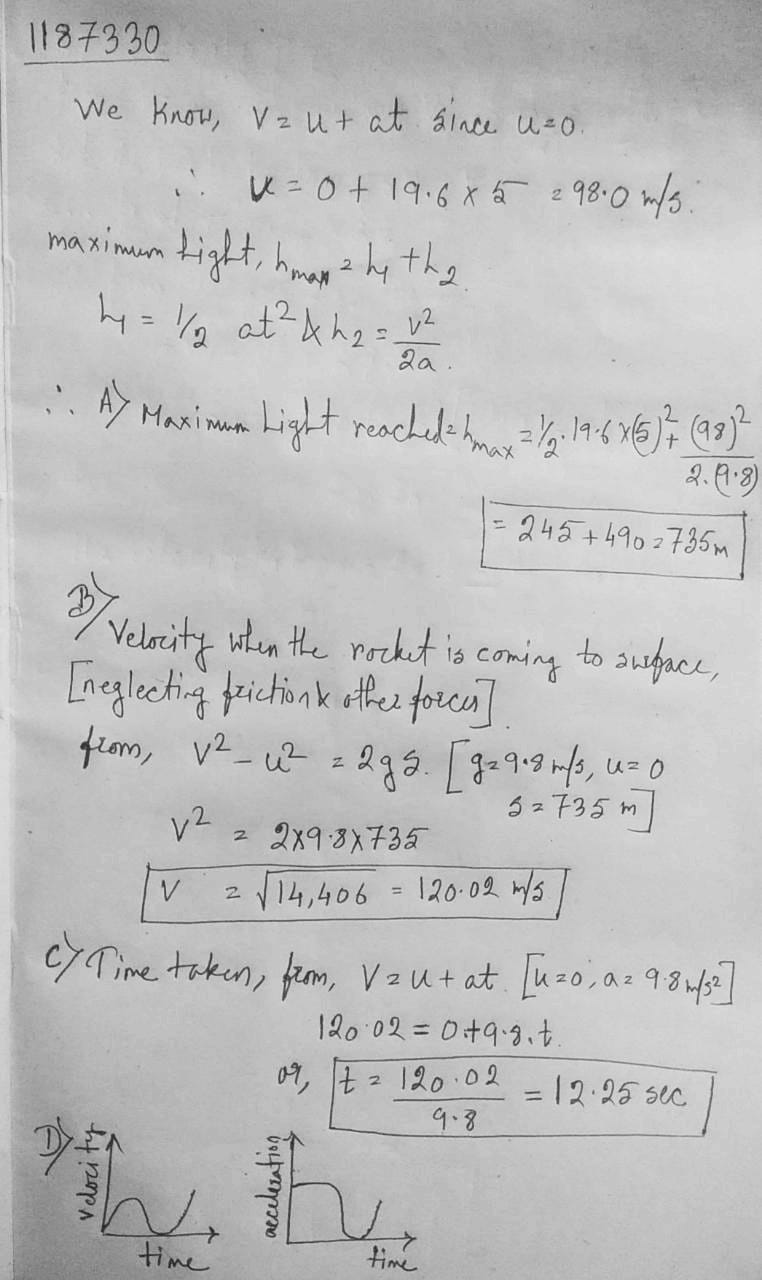 1187330
We know, V = u + at since u=0.
∴ V = 0 + 19.6 x 5 = 98.0 m/s.
maximum hight, hmax = h1 + h2.
h1 = 1/2 at² & h2 = v²/2a.
∴ A) Maximum hight reached = hmax = 1/2. 19.6 x(5)² + (98)²/2.(9.8)
= 245 + 490 = 735m
B) Velocity when the rocket is coming to surface,
[neglecting friction & other forces]
from, v² - u² = 2gs. [g=9.8 m/s, u=0
s = 735 m]
v² = 2x9.8x735
V = √14,406 = 120.02 m/s
C) Time taken, from, V = u + at. [u=0, a = 9.8 m/s²]
120.02 = 0+9.8.t.
or, t = 120.02/9.8 = 12.25 sec
D) velocity
time
acceleration
time